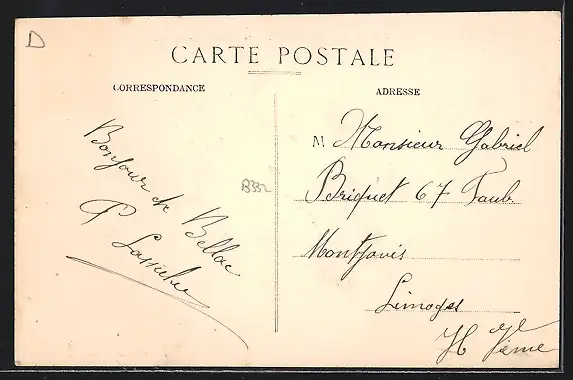 D
CARTE POSTALE
CORRESPONDANCE
ADRESSE
Bonjour de Bellac
P
B332
M Monsieur Gabriel
Briquet 67 Faub.
Montjovis
Limoges
Hte Vienne